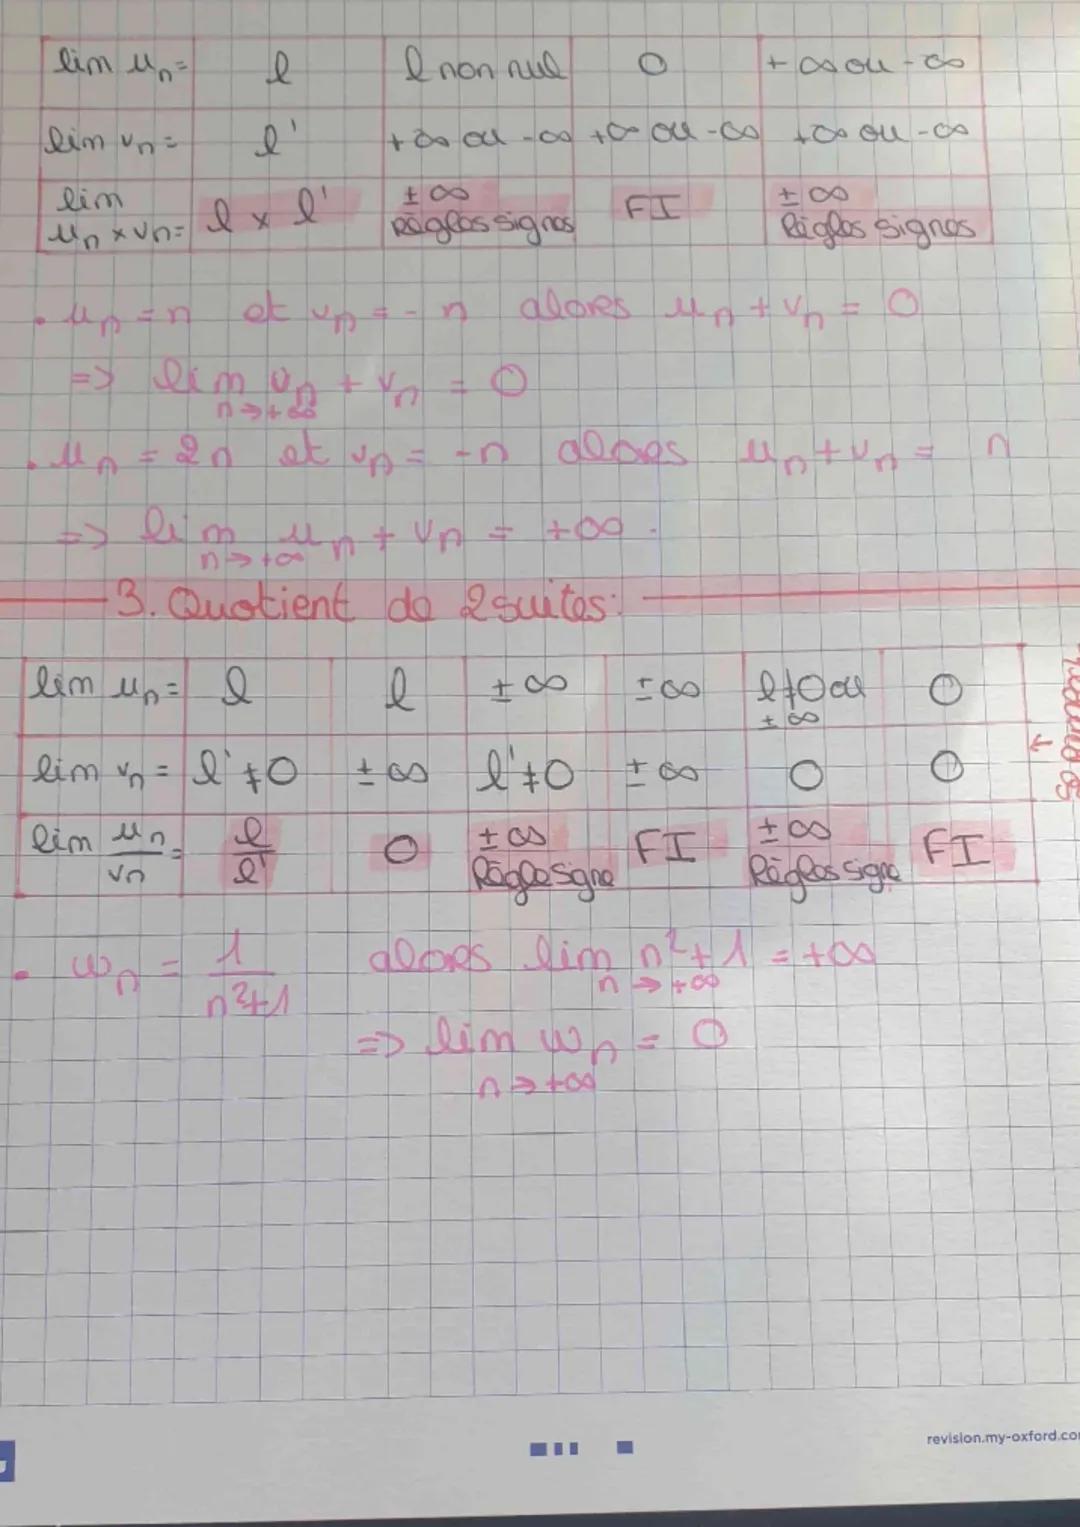 lim un = l l non nul 0 +∞ ou -∞
lim vn = l' +∞ ou -∞ +∞ ou -∞ +∞ ou -∞
lim un × vn = l × l' ±∞ Règles signes FI ±∞ Règles signes
• un = n et vn = -n alors un + vn = 0
=> lim n→+∞ un + vn = 0
• un = 2n et vn = -n alors un + vn = n
=> lim n→+∞ un + vn = +∞.
3. Quotient de 2 suites:
lim un = l l ±∞ ±∞ l≠0 ou ±∞ 0
lim vn = l'≠0 ±∞ l'≠0 ±∞ 0 0
lim un/vn = l/l' 0 ±∞ Règle signe FI ±∞ Règles signe FI
• wn = 1/(n²+1) alors lim n→+∞ n²+1 = +∞
=> lim n→+∞ wn = 0